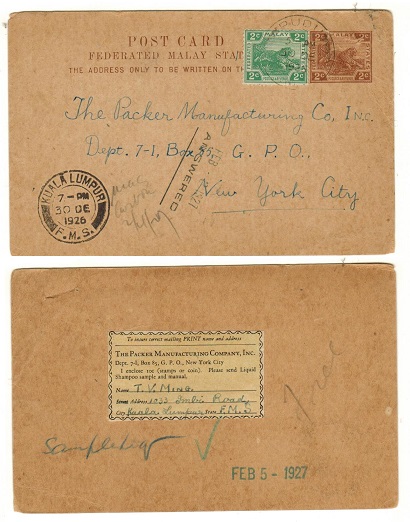 POST CARD
FEDERATED MALAY
THE ADDRESS ONLY TO BE WRITTEN ON
2c 2c
MALAY
2c 2c
The Packer Manufacturing Co, Inc.
Dept. 7-1, Box G. P. O.,
New York City
FEB 1927
ANSWERED
KUALA LUMPUR
7-PM
30 DE
1926
F.M.S.
To insure correct mailing PRINT name and address
THE PACKER MANUFACTURING COMPANY, INC.
Dept. 7-I, Box 85, G. P. O., New York City
I enclose 10c (stamps or coin). Please send Liquid
Shampoo sample and manual.
Name T. V. Ming
Street Address 1032 Imbi Road,
City Kuala Lumpur State F.M.S.
FEB 5 - 1927